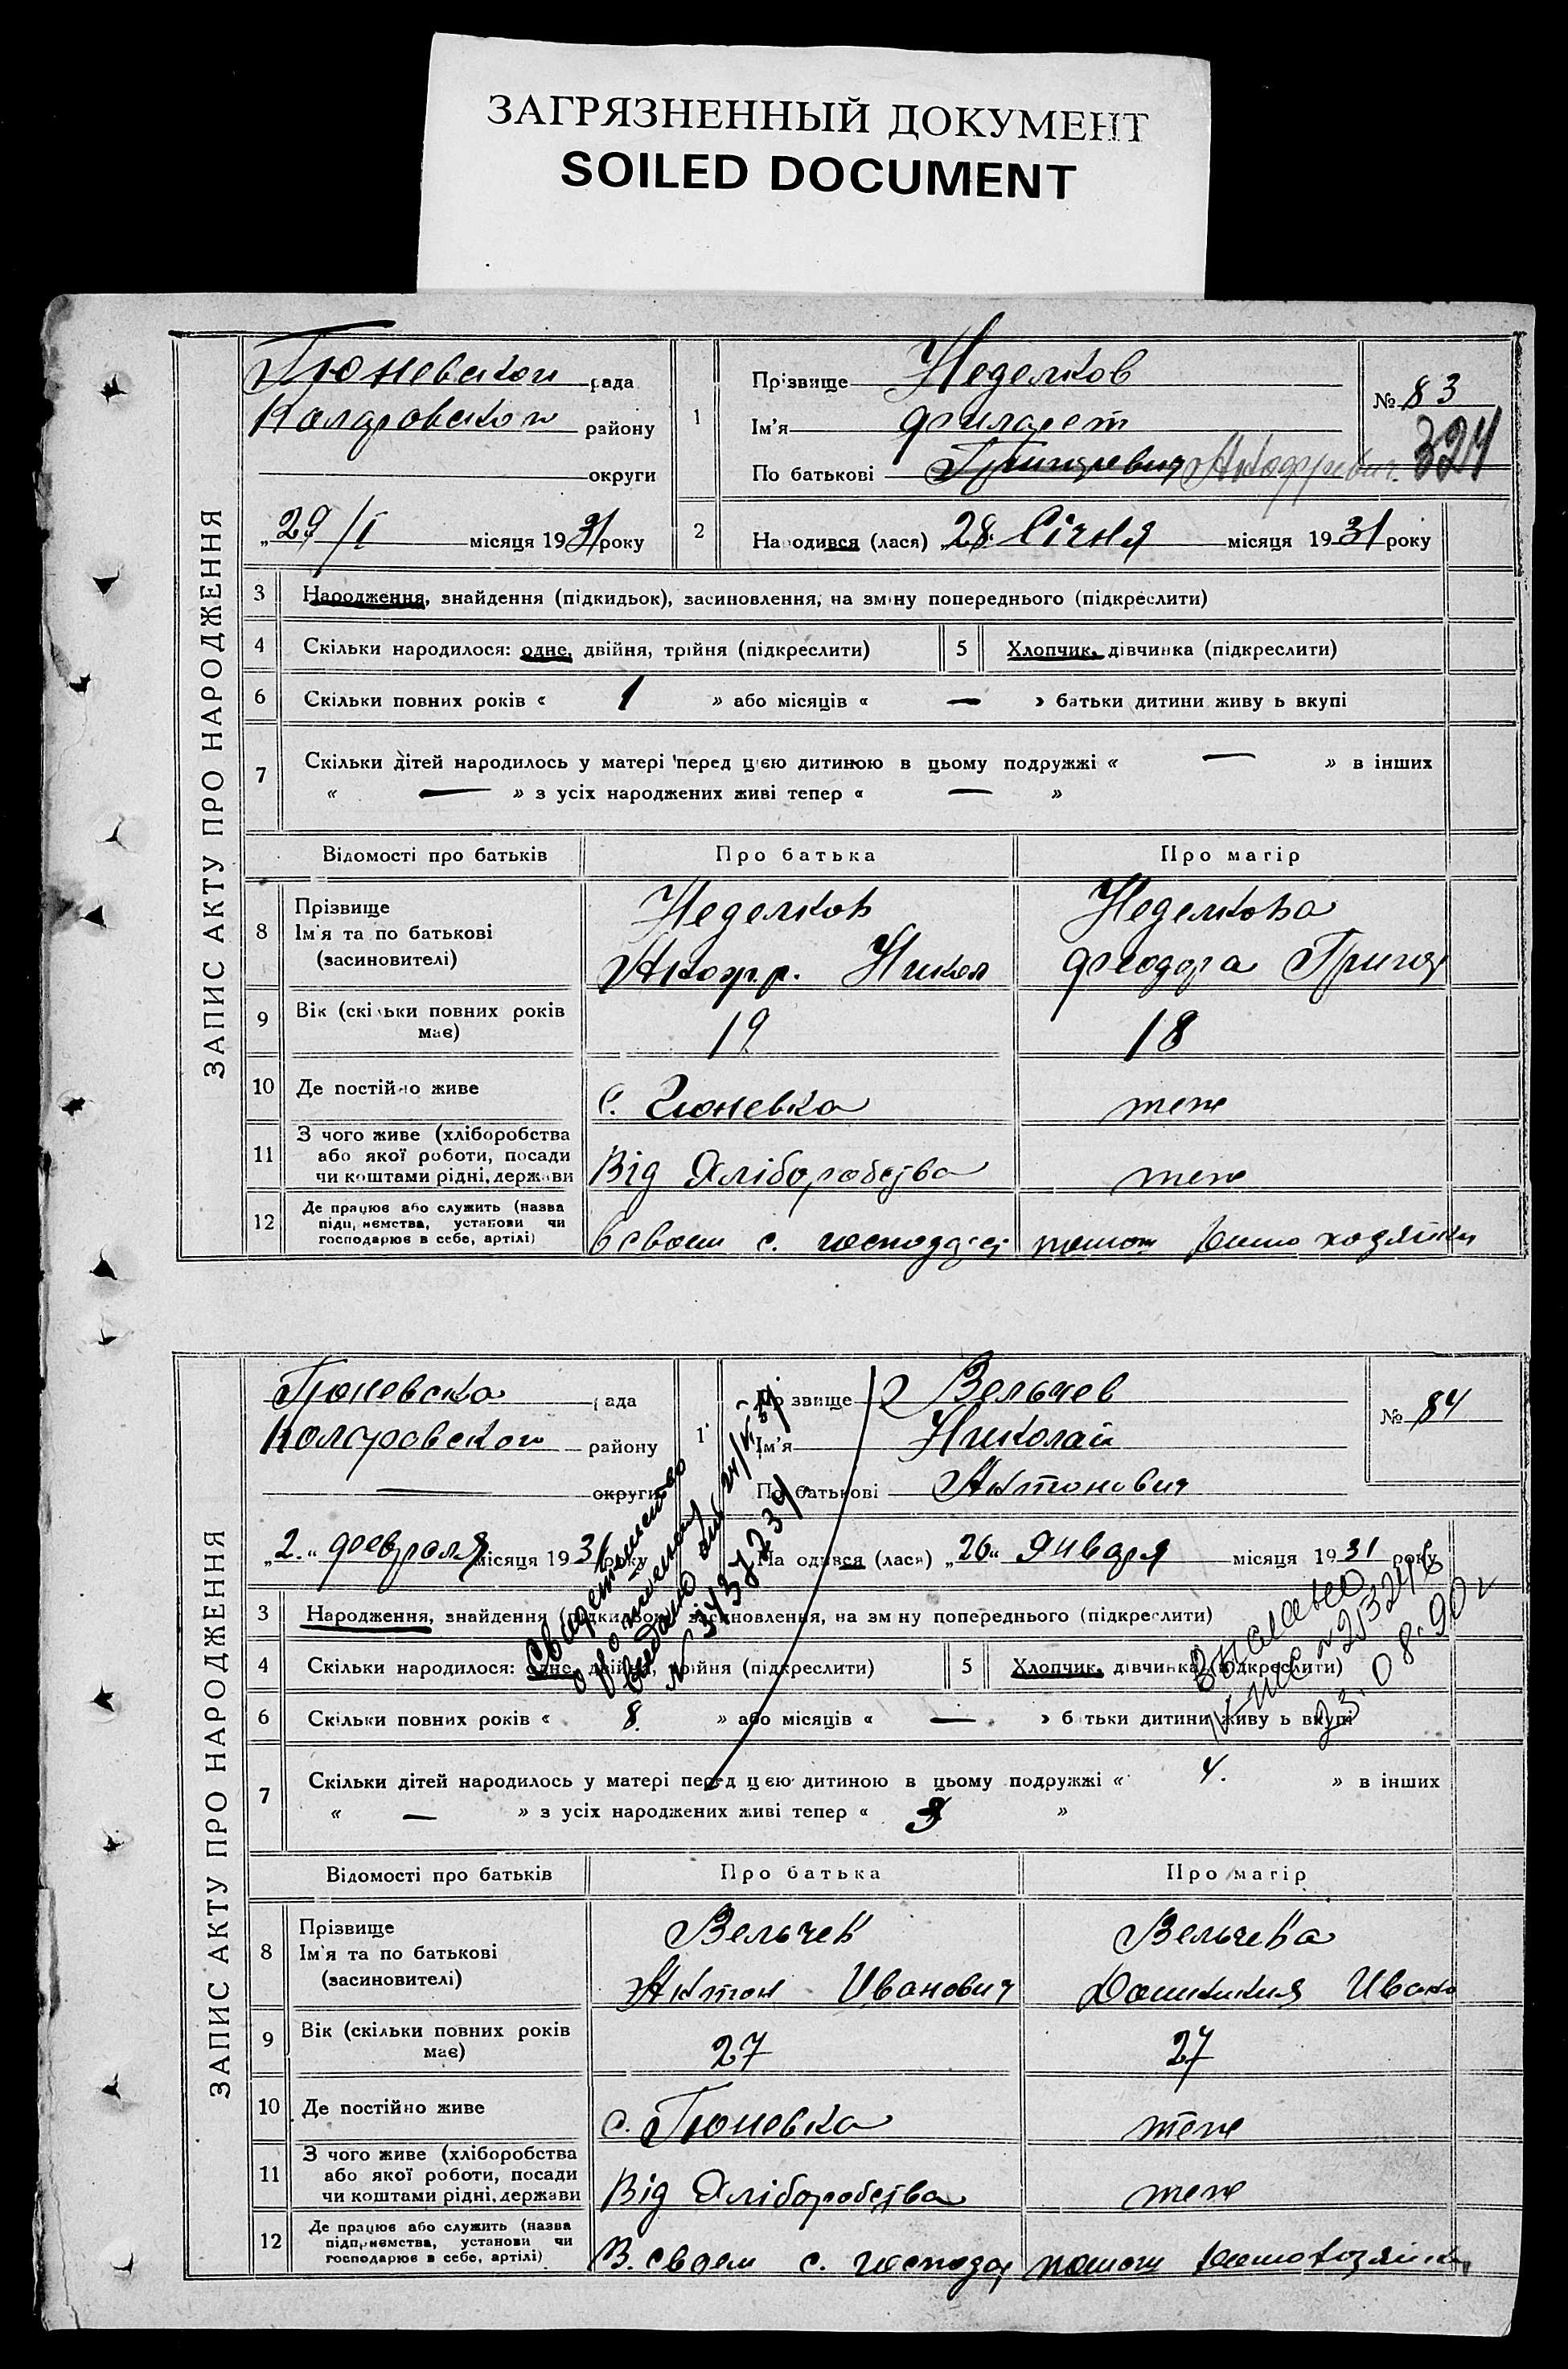 ЗАГРЯЗНЕННЫЙ ДОКУМЕНТ
SOILED DOCUMENT
ЗАПИС АКТУ ПРО НАРОДЖЕННЯ
Гюневской рада
Коларовской району
округи
„29/I місяця 1931 року
1
Прізвище Неделков
Ім'я Филарет
По батькові Григоревич Никофорович.
№ 83
324
2 Народився (лася) „28. Січня місяця 1931 року
3 Народження, знайдення (підкидьок), засиновлення, на зміну попереднього (підкреслити)
4 Скільки народилося: одне, двійня, трійня (підкреслити) 5 Хлопчик, дівчинка (підкреслити)
6 Скільки повних років « 1 » або місяців « — » батьки дитини живу ь вкупі
7 Скільки дітей народилось у матері перед цією дитиною в цьому подружжі « — » в інших
« — » з усіх народжених живі тепер « — »
Відомості про батьків Про батька Про матір
8 Прізвище
Ім'я та по батькові
(засиновителі)
Неделков
Никофр. Никол
Неделкова
Феодора Григор
9 Вік (скільки повних років має) 19 18
10 Де постійно живе с. Гюневка теж
11 З чого живе (хліборобства
або якої роботи, посади
чи коштами рідні, держави
Від Хліборобства теж
12 Де працює або служить (назва
підприємства, установи чи
господарює в себе, артілі)
В своем с.
ЗАПИС АКТУ ПРО НАРОДЖЕННЯ
Гюневска рада
Коларовской району
— округи
„2.“ февраля місяця 1931 року
1
Прізвище Вельчев
Ім'я Николай
По батькові Антонович
№ 84
Народився (лася) „26“ Января місяця 1931 року
Свидетельство
о
выдано
23.08.90 г
3 Народження, знайдення (підкидьок), засиновлення, на зміну попереднього (підкреслити)
4 Скільки народилося: одне, двійня, трійня (підкреслити) 5 Хлопчик, дівчинка (підкреслити)
6 Скільки повних років « 8. » або місяців « — » батьки дитини живу ь вкупі
7 Скільки дітей народилось у матері перед цією дитиною в цьому подружжі « 4. » в інших
« — » з усіх народжених живі тепер « 3 »
Відомості про батьків Про батька Про матір
8 Прізвище
Ім'я та по батькові
(засиновителі)
Вельчев
Антон Иванович
Вельчева
Домникия Ивано
9 Вік (скільки повних років має) 27 27
10 Де постійно живе с. Гюневка теж
11 З чого живе (хліборобства
або якої роботи, посади
чи коштами рідні, держави
Від Хліборобства теж
12 Де працює або служить (назва
підприємства, установи чи
господарює в себе, артілі)
В. своем с.